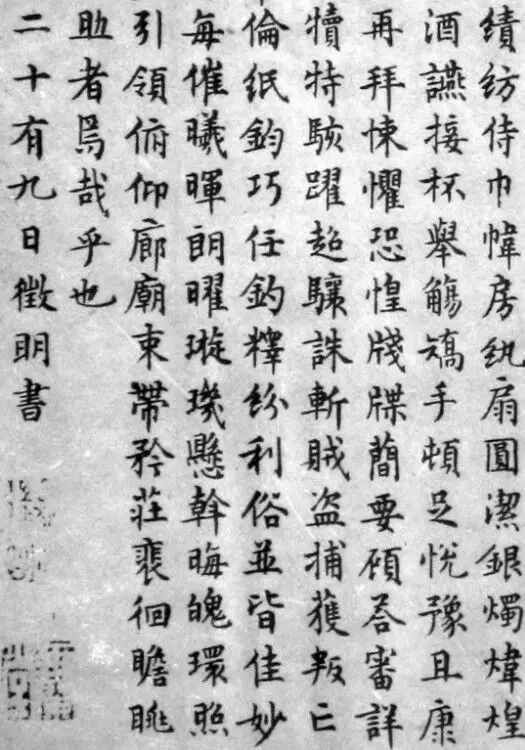 績紡侍巾幃房紈扇圓潔銀燭煒煌
酒讌接杯舉觴矯手頓足悅豫且康
再拜悚懼恐惶牋牒簡要顧荅審詳
犢特駭躍超驤誅斬賊盜捕獲叛亡
倫紙鈞巧任釣釋紛利俗並皆佳妙
每催曦暉朗曜璇璣懸斡晦魄環照
引領俯仰廊廟束帶矜莊裵徊瞻眺
助者焉哉乎也
二十有九日徵明書